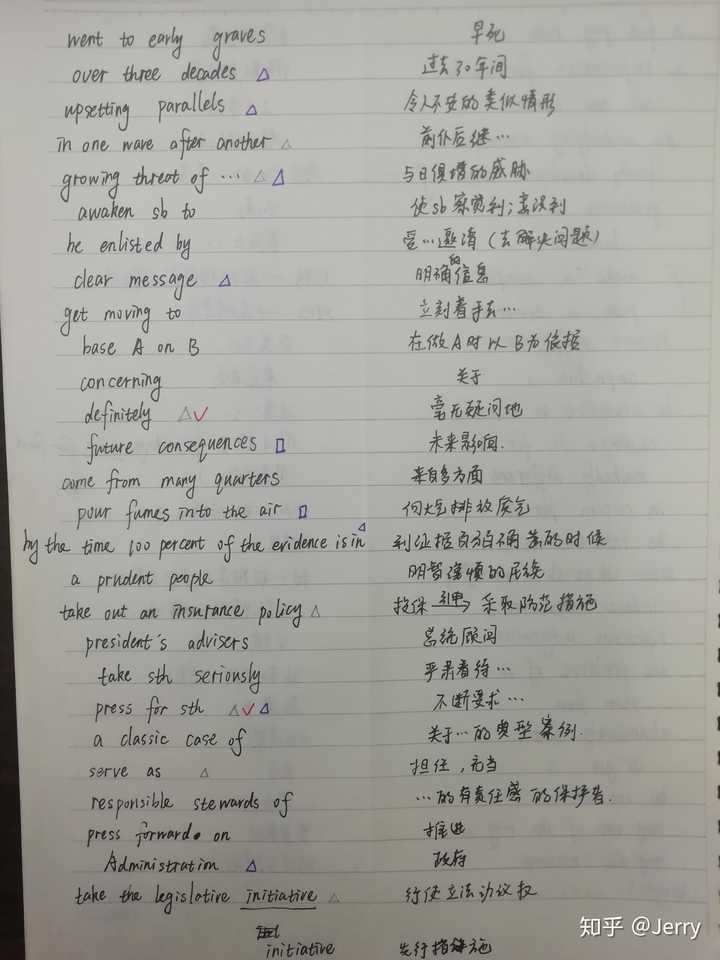 went to early graves 早死
over three decades △ 过去30年间
upsetting parallels △ 令人不安的类似情形
in one wave after another △ 前仆后继…
growing threat of … △ △ 与日俱增的威胁
awaken sb to 使sb察觉到;意识到
be enlisted by 受…邀请(去解决问题)
clear message △ 明确的信息
get moving to 立刻着手去…
base A on B 在做A时以B为依据
concerning 关于
definitely △✓ 毫无疑问地
future consequences □ 未来影响.
come from many quarters 来自多方面
pour fumes into the air □ 向大气排放废气
by the time 100 percent of the evidence is in △ 到证据百分百确凿的时候
a prudent people 明智谨慎的民族
take out an insurance policy △ 投保 引申→ 采取防范措施
president's advisers 总统顾问
take sth seriously 严肃看待…
press for sth △✓△ 不断要求…
a classic case of 关于…的典型案例.
serve as △ 担任,充当
responsible stewards of …的有责任感的保护者.
press forward on 推进
Administration △ 政府
take the legislative initiative △ 行使立法动议权
initiative 先行措施
知乎 @Jerry